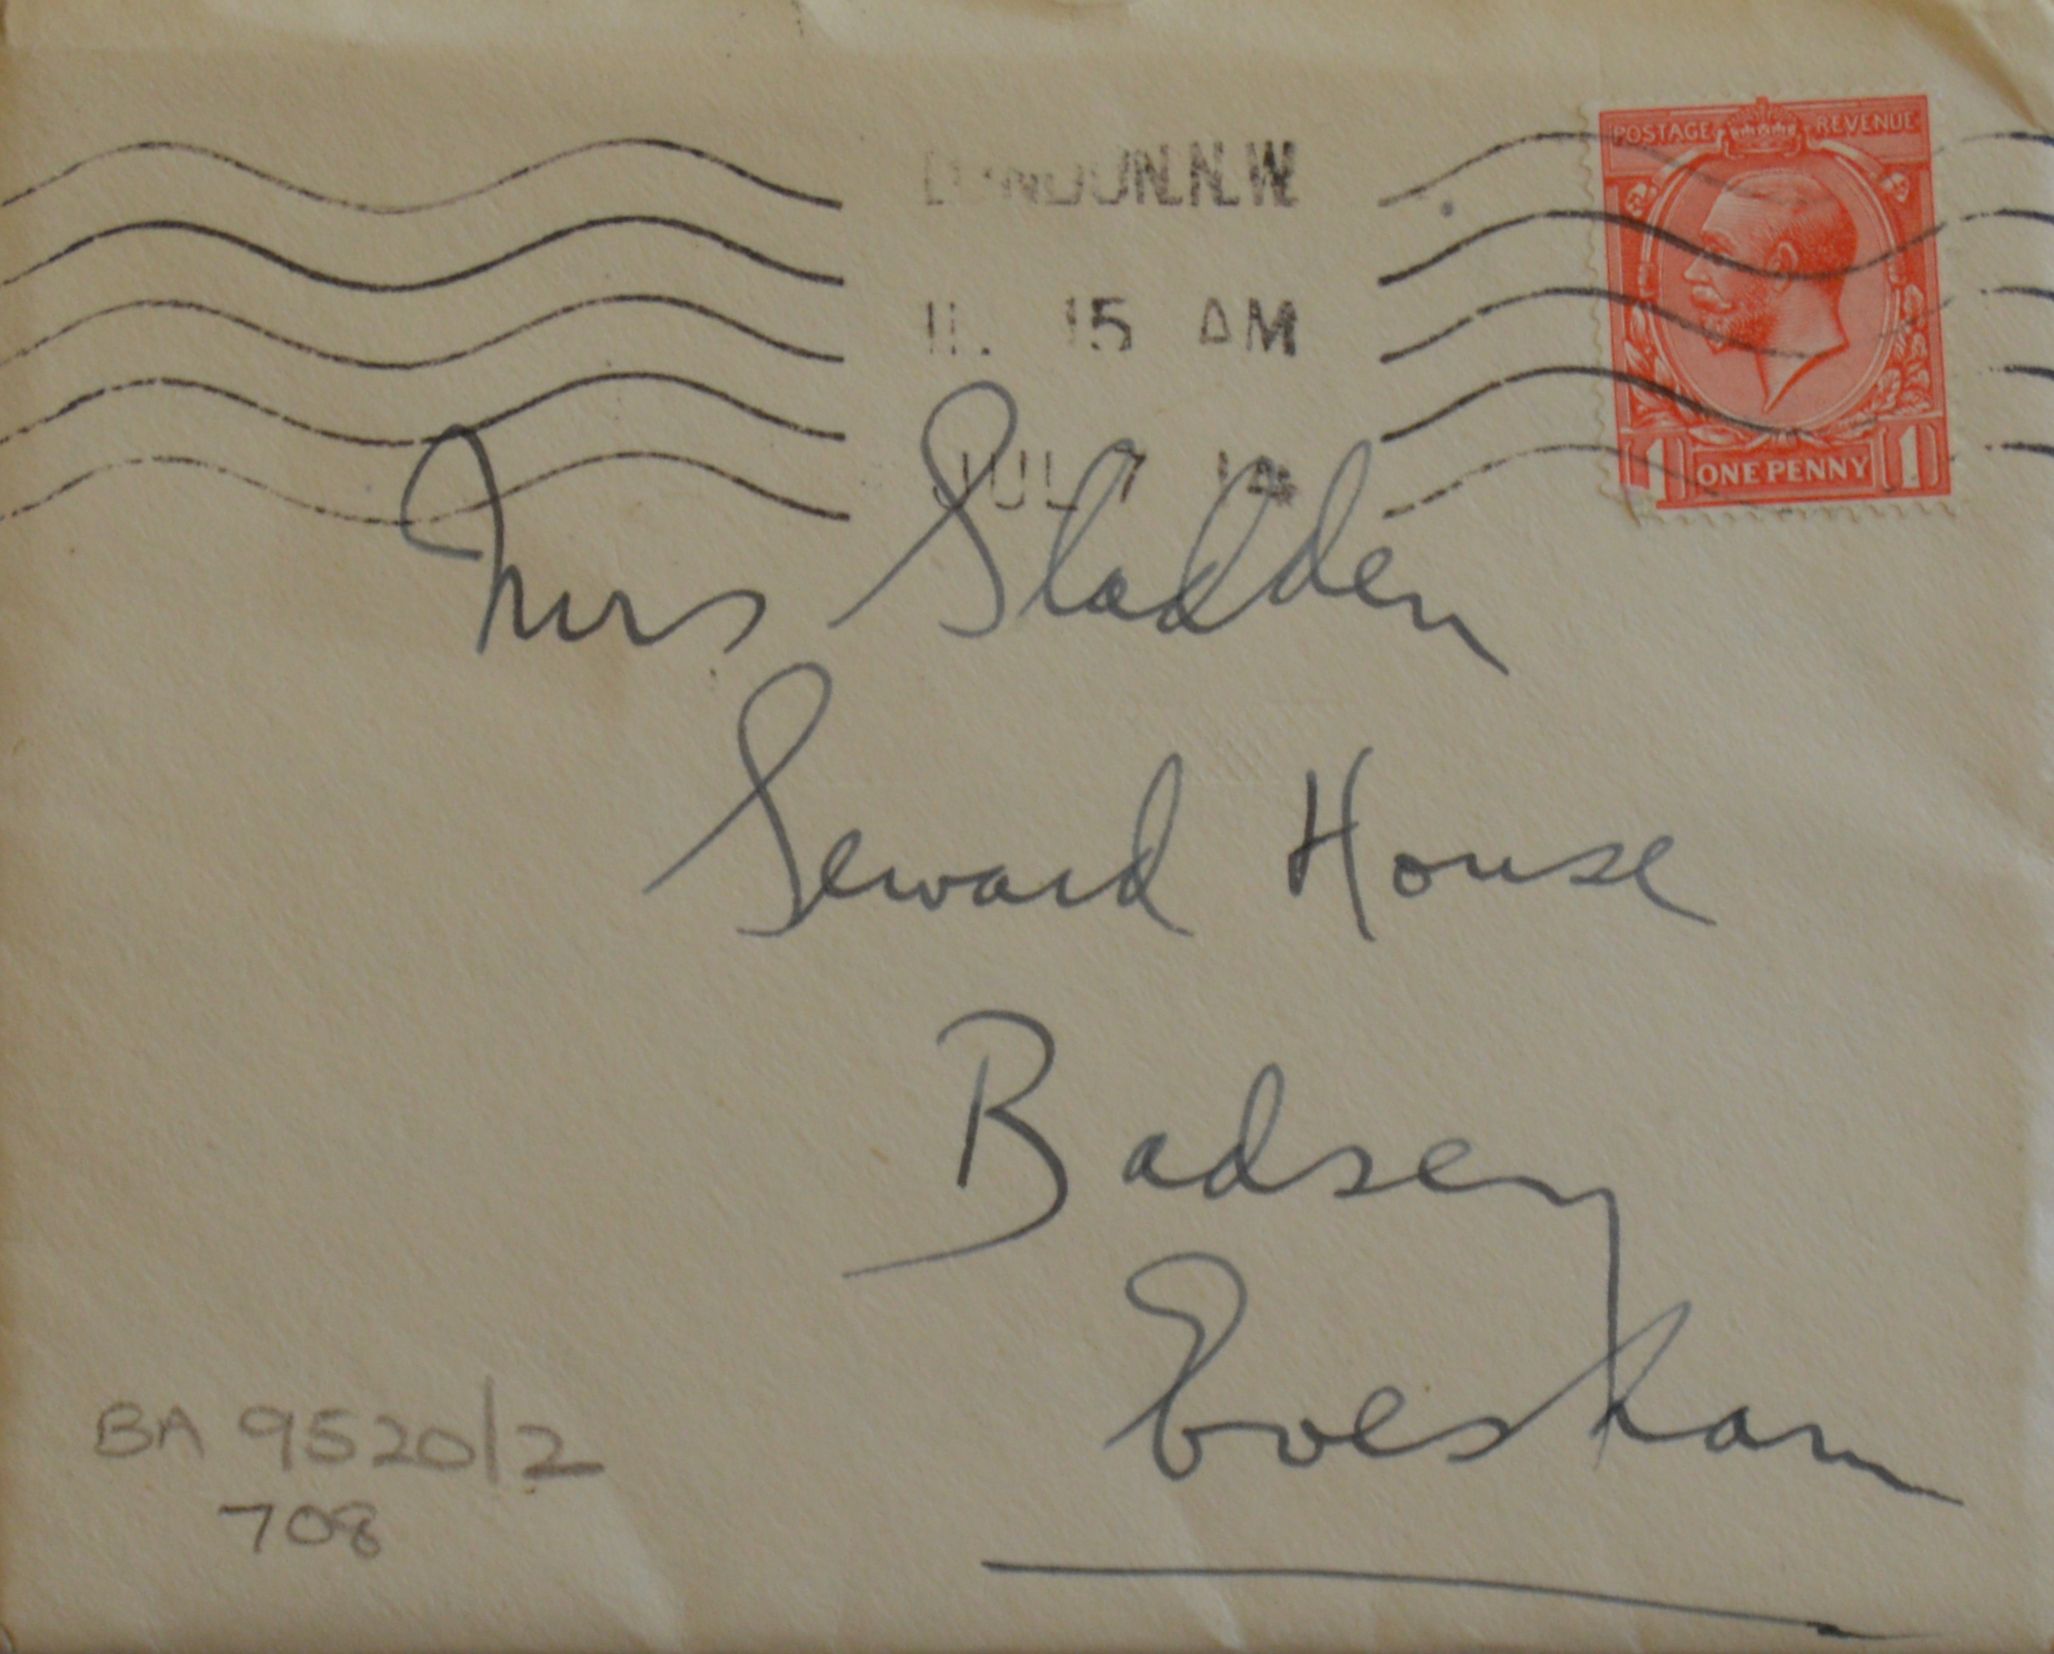 LONDON.N.W.
11. 15 AM
JUL 7 14
POSTAGE REVENUE
1 ONE PENNY 1
Mrs Sladden
Seward House
Badsey
Evesham
BA 9520/2
708